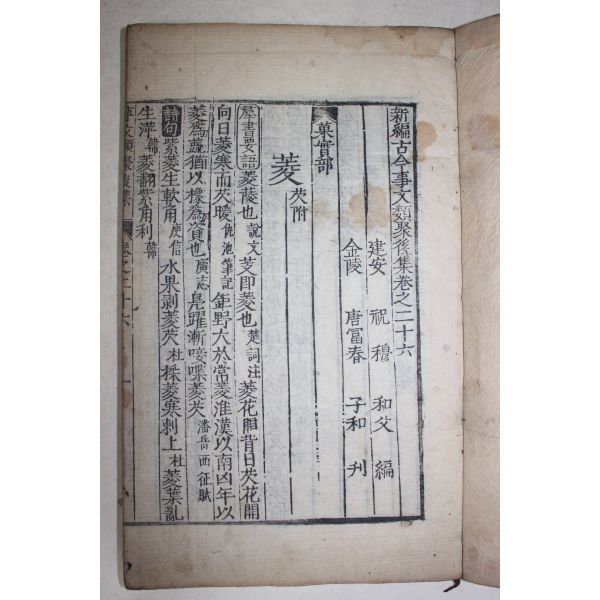 新編古今事文類聚後集卷之二十六
建安 祝穆 和父 編
金陵 唐冨春 子和 刋
菓實部
菱 芡附
羣書要語菱蔆也說文芰即菱也楚詞注菱花𦚾昔日芡花開
向日菱寒而芡暖 池筆記 野大於常菱淮漢以南凶年以
菱爲蔬猶以橡爲資也廣志鳧躍漸唼喋菱芡潘岳西征賦
詩句紫菱生軟角庾信水果剥菱芡杜採菱寒刺上杜菱葉亂
生萍 菱翻紫角利
事文類聚後集 卷之二十六